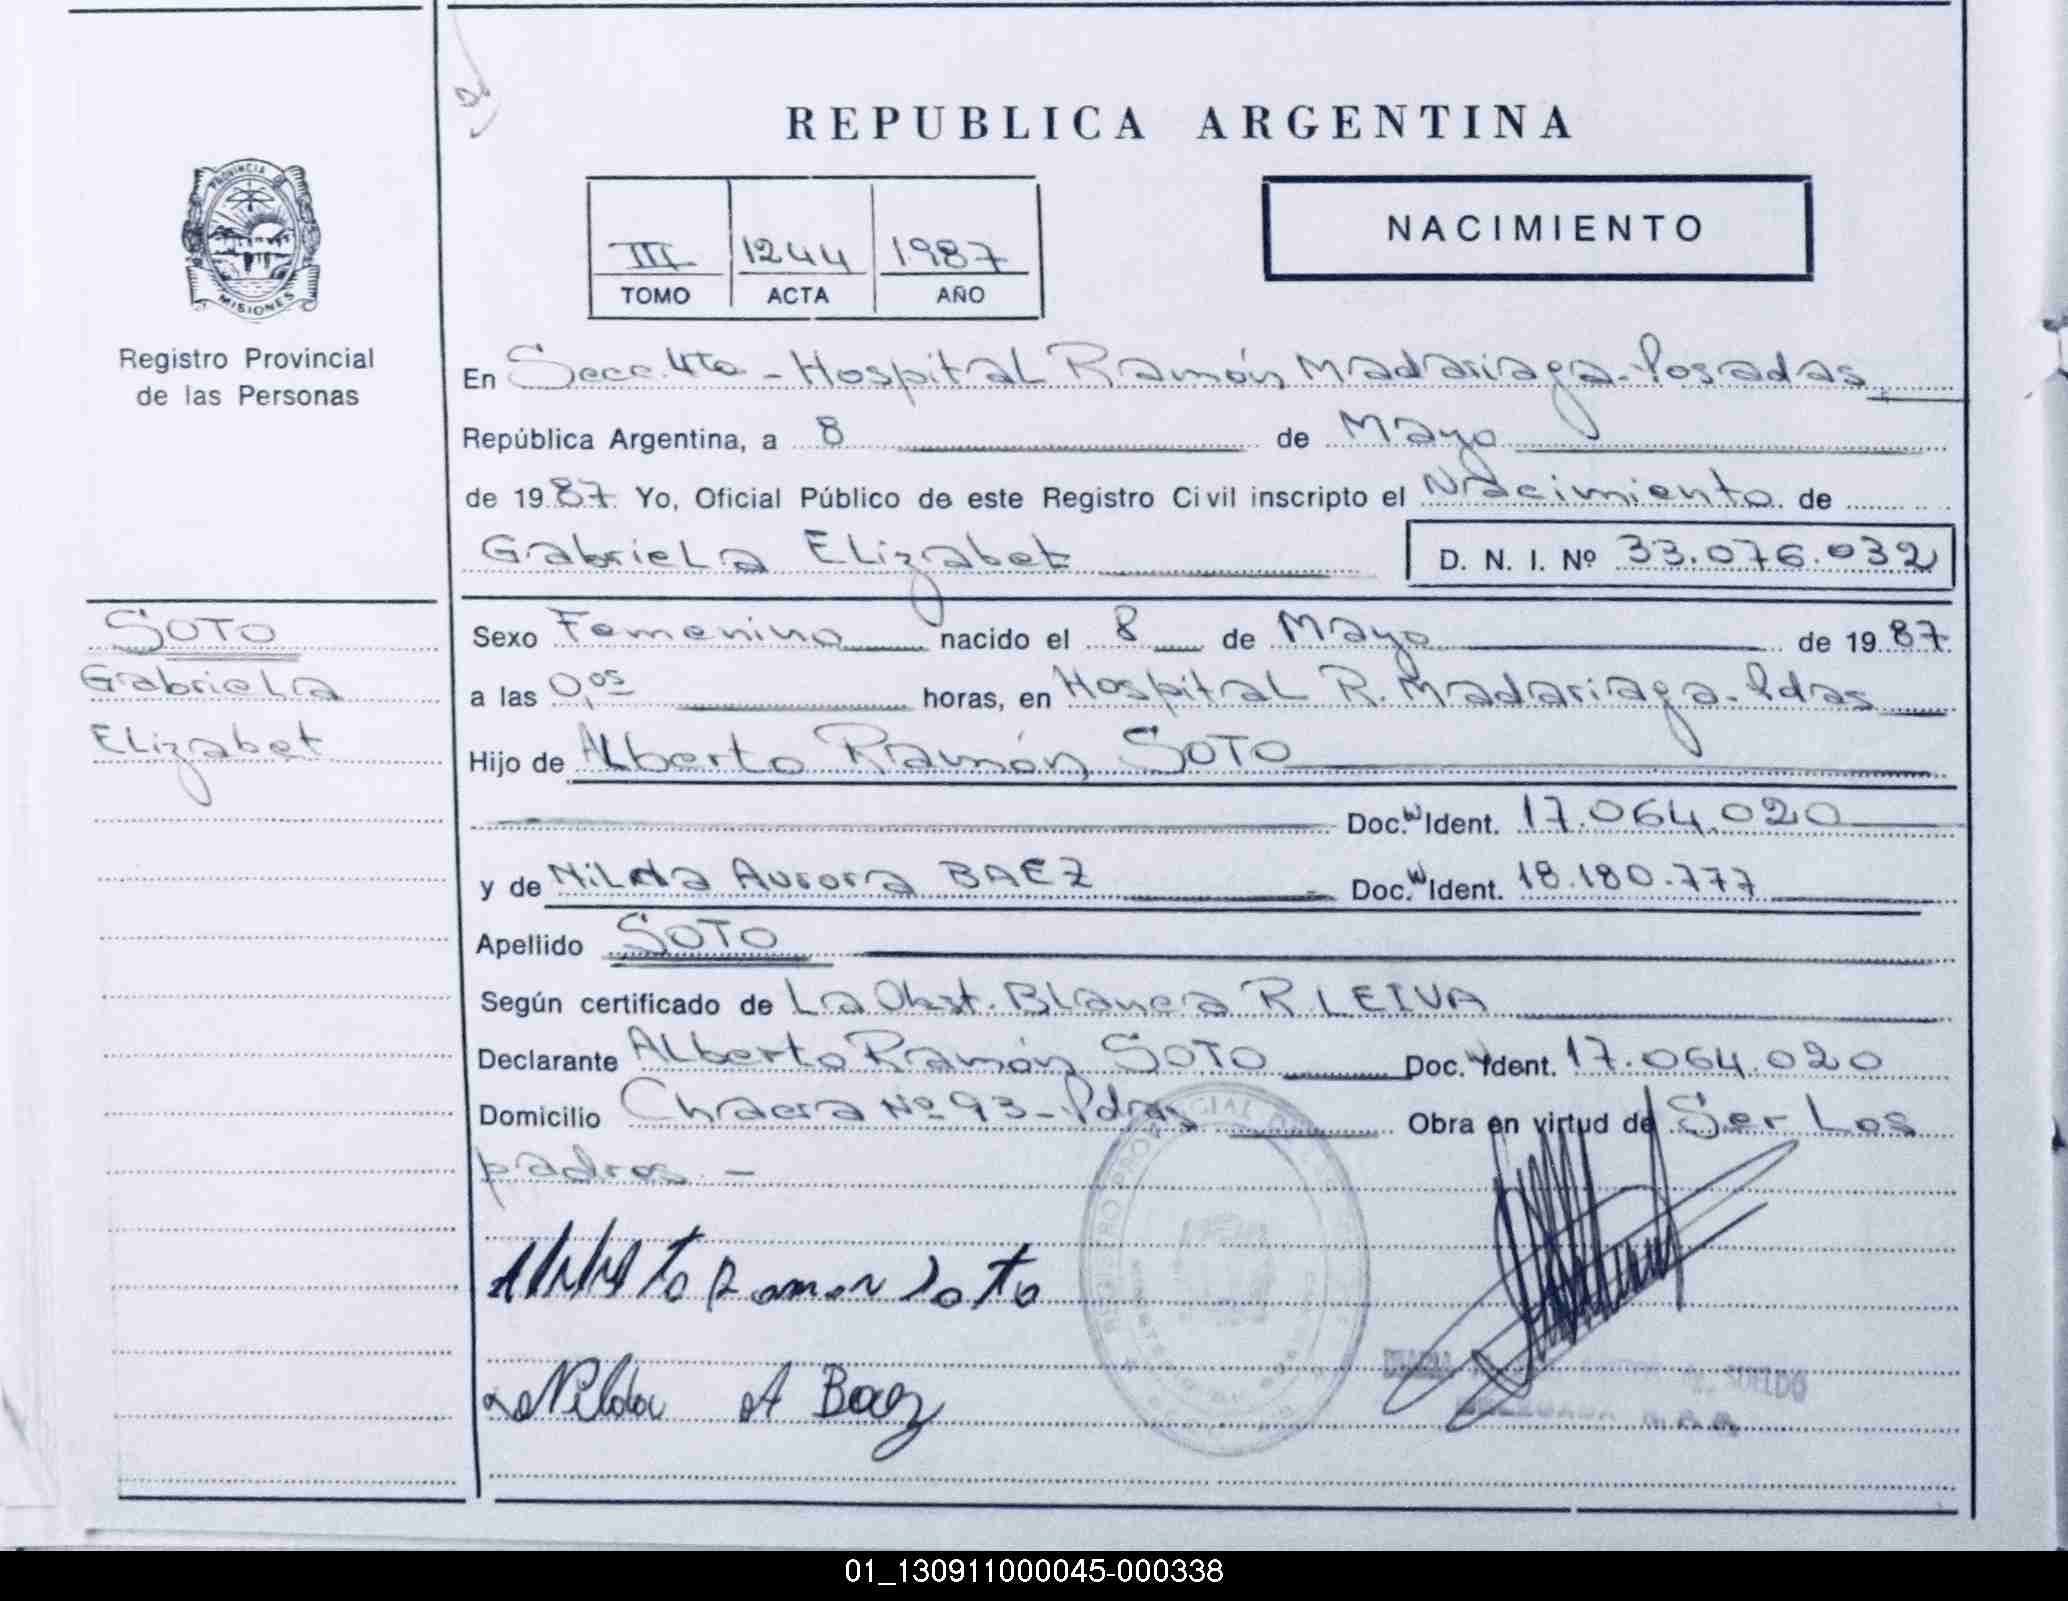 REPUBLICA ARGENTINA
PROVINCIA DE
MISIONES
Registro Provincial
de las Personas
III 1244 1987
TOMO ACTA AÑO
NACIMIENTO
En Secc. 4ta - Hospital Ramón Madariaga - Posadas
República Argentina, a 8 de Mayo
de 1987 Yo, Oficial Público de este Registro Civil inscripto el Nacimiento de
Gabriela Elizabet D. N. I. Nº 33.076.032
SOTO
Gabriela
Elizabet
Sexo Femenino nacido el 8 de Mayo de 1987
a las 0,05 horas, en Hospital R. Madariaga - Pdas
Hijo de Alberto Ramón SOTO
Doc. Ident. 17.064.020
y de Nilda Aurora BAEZ Doc. Ident. 18.180.777
Apellido SOTO
Según certificado de La Obst. Blanca R. LEIVA
Declarante Alberto Ramón SOTO Doc. Ident. 17.064.020
Domicilio Chacra Nº 93 - Pdas Obra en virtud de Ser Los
padres. -
Alberto Ramon Soto
Nilda A Baez
SUELDO
01_130911000045-000338